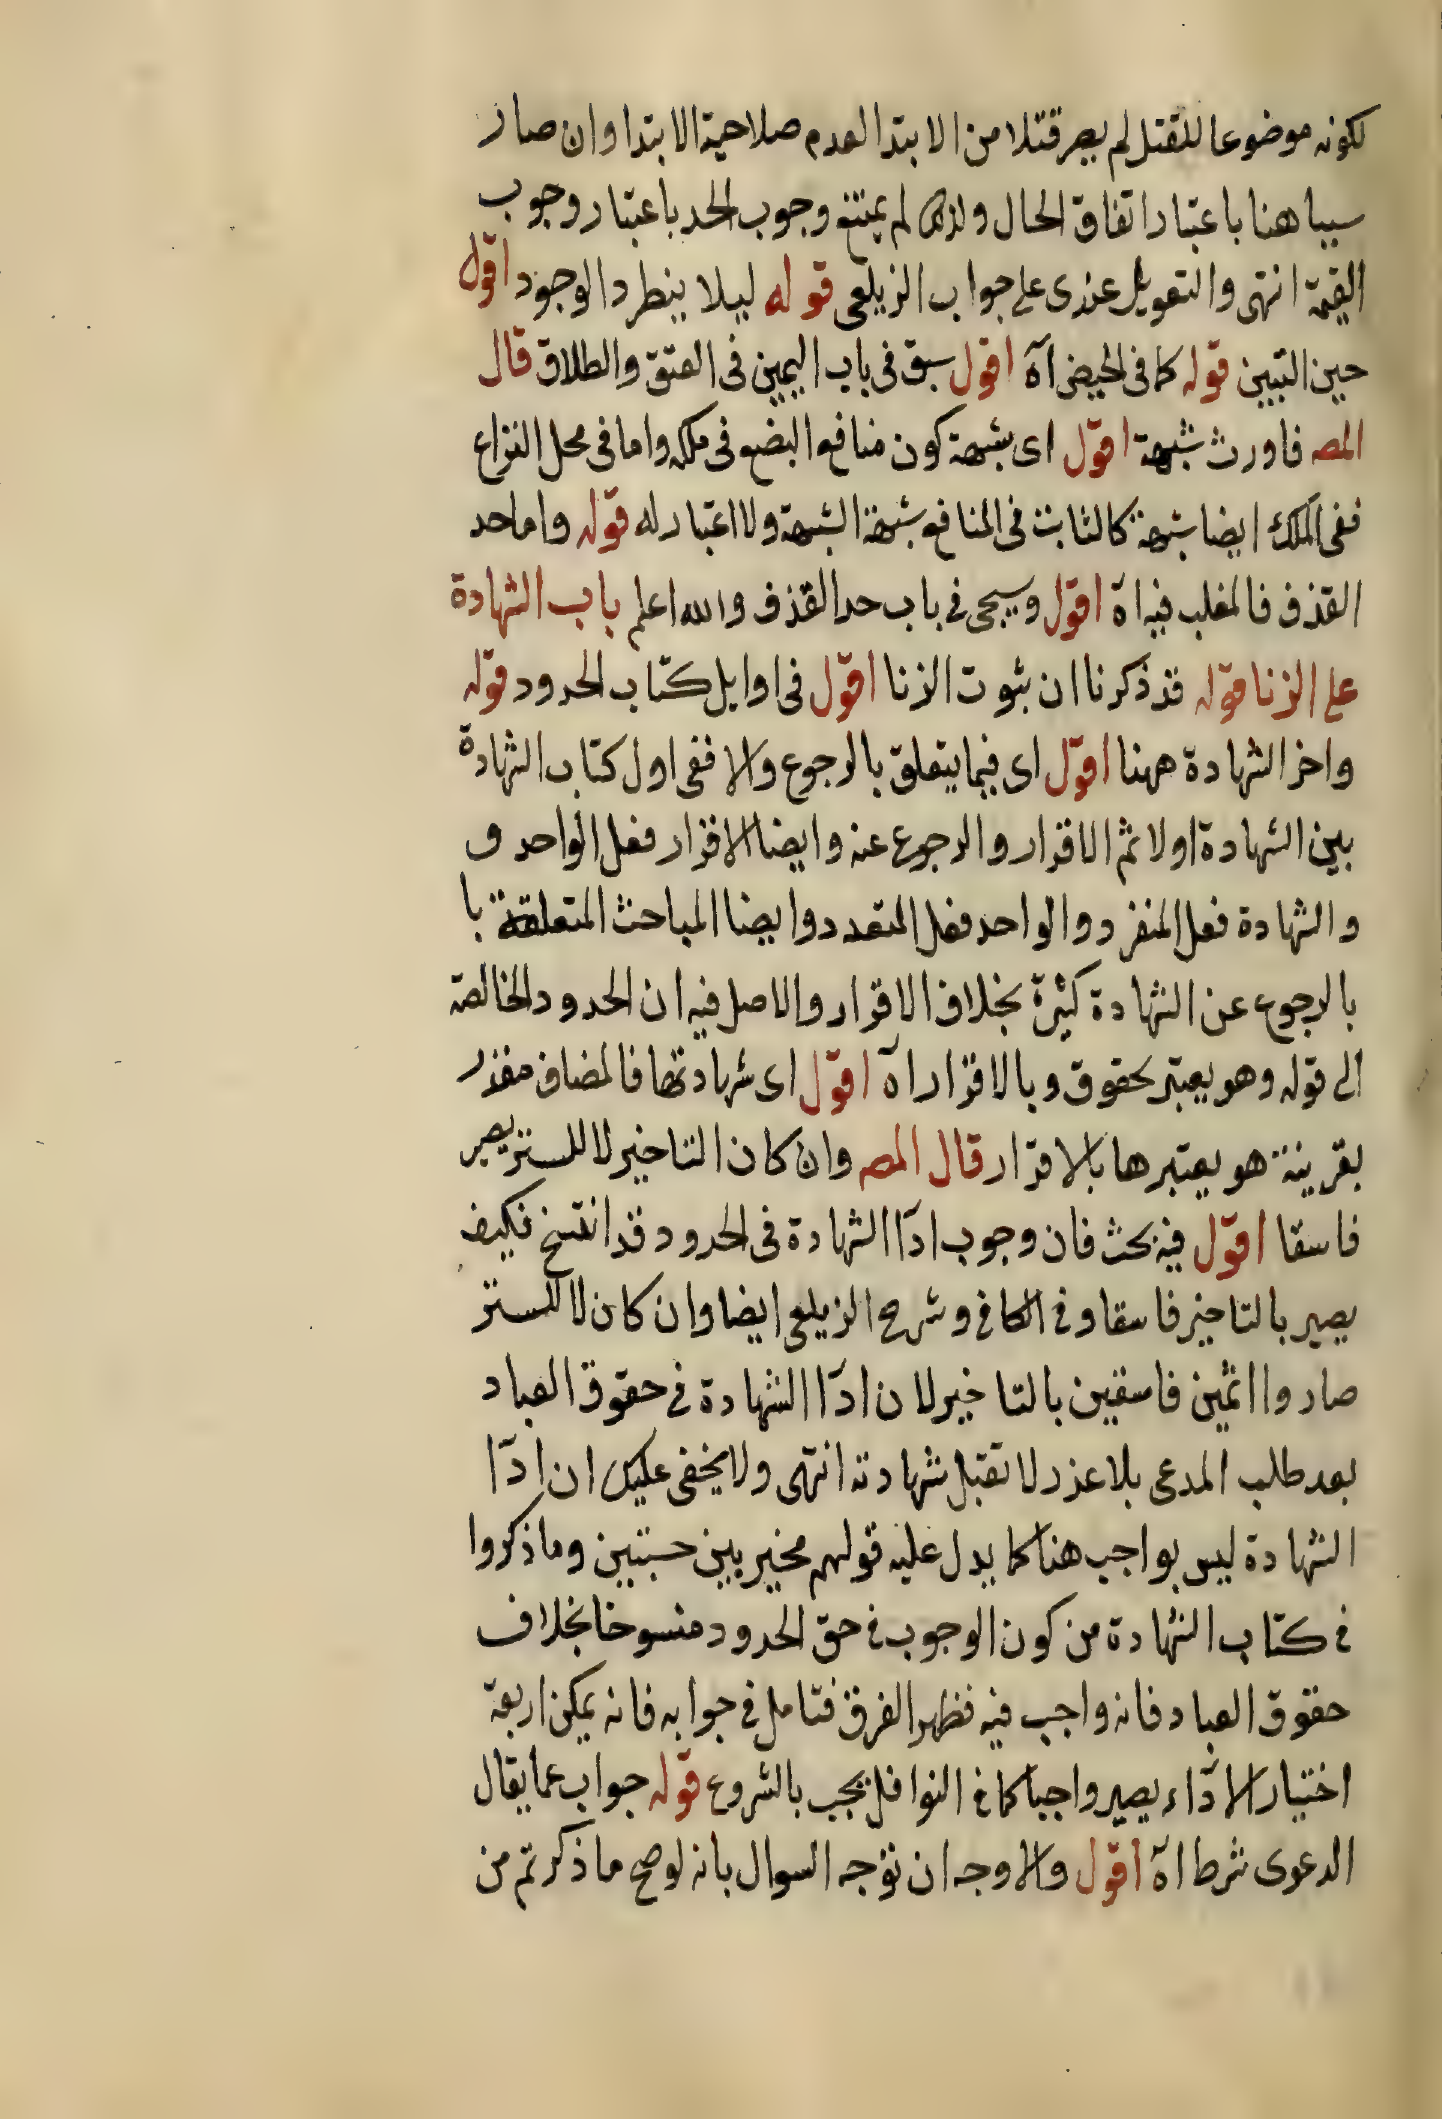 لكونه موضوعا للقتل لم يصر قتلا من الابتدا لعدم صلاحية الابتدا وان صار
سببا هنا باعتبار اتفاق الحال ولذلك لم يمتنع وجوب الحد باعتبار وجوب
القيمة انتهى والتعويل عندى على جواب الزيلعى قوله ليلا ينطرد الوجود اقول
حين التبين قوله كما فى الحيض آه اقول سبق فى باب اليمين فى العتق والطلاق قال
المص فاورث شبهة اقول اى بشبهة كون منافع البضع فى ملكه واما فى محل النزاع
ففى الملك ايضا شبهة كالثابت فى المنافع شبهة الشبهة ولا اعتبار له قوله واما حد
القذف فالمغلب فيه آه اقول وسيجى فى باب حد القذف والله اعلم باب الشهادة
على الزنا قوله قد ذكرنا ان ثبوت الزنا اقول فى اوايل كتاب الحدود قوله
واخر الشهادة ههنا اقول اى فيما يتعلق بالرجوع والا ففى اول كتاب الشهادة
بين الشهادة اولا ثم الاقرار والرجوع عنه وايضا الاقرار فعل الواحد و
والشهادة فعل المنفرد والواحد فعل المتعدد وايضا المباحث المتعلقة با
بالرجوع عن الشهادة كثيرة بخلاف الاقرار والاصل فيه ان الحدود الخالصة
الى قوله وهو يعتبر بحقوق وبالاقرار آه اقول اى شهادتها فالمضاف مقدر
بقرينة هو يعتبرها بالاقرار قال المص وان كان التاخير لا للستر يصير
فاسقا اقول فيه بحث فان وجوب ادآ الشهادة فى الحدود قد انتسخ فكيف
يصير بالتاخير فاسقا وفى الكافى وشرح الزيلعى ايضا وان كان لا للستر
صاروا اثمين فاسقين بالتاخير لان ادآ الشهادة فى حقوق العباد
بعد طلب المدعى بلا عذر لا تقبل شهادته انتهى ولا يخفى عليك ان ادآ
الشهادة ليس بواجب هنا كما يدل عليه قولهم مخير بين حسبتين وما ذكروا
فى كتاب الشهادة من كون الوجوب فى حق الحدود منسوخا بخلاف
حقوق العباد فانه واجب فيه فظهر الفرق فتامل فى جوابه فانه يمكن اربعة
اختيار الادآء يصير واجبا كما فى النوافل يجب بالشروع قوله جواب عما يقال
الدعوى شرط آه اقول والاوجه ان نوجه السوال بانه لو صح ما ذكرتم من